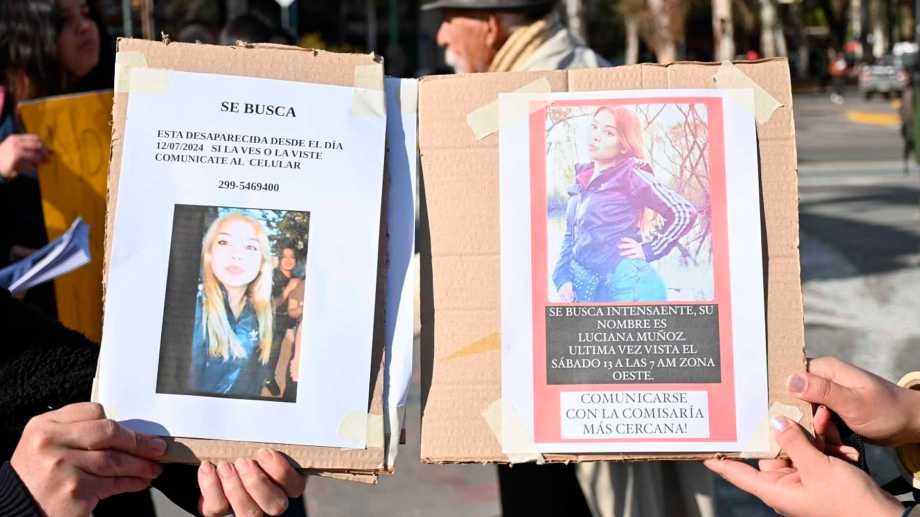 SE BUSCA
ESTA DESAPARECIDA DESDE EL DÍA
12/07/2024 SI LA VES O LA VISTE
COMUNICATE AL CELULAR
299-5469400
SE BUSCA INTENSAENTE, SU
NOMBRE ES
LUCIANA MUÑOZ.
ULTIMA VEZ VISTA EL
SÁBADO 13 A LAS 7 AM ZONA
OESTE.
COMUNICARSE
CON LA COMISARÍA
MÁS CERCANA!